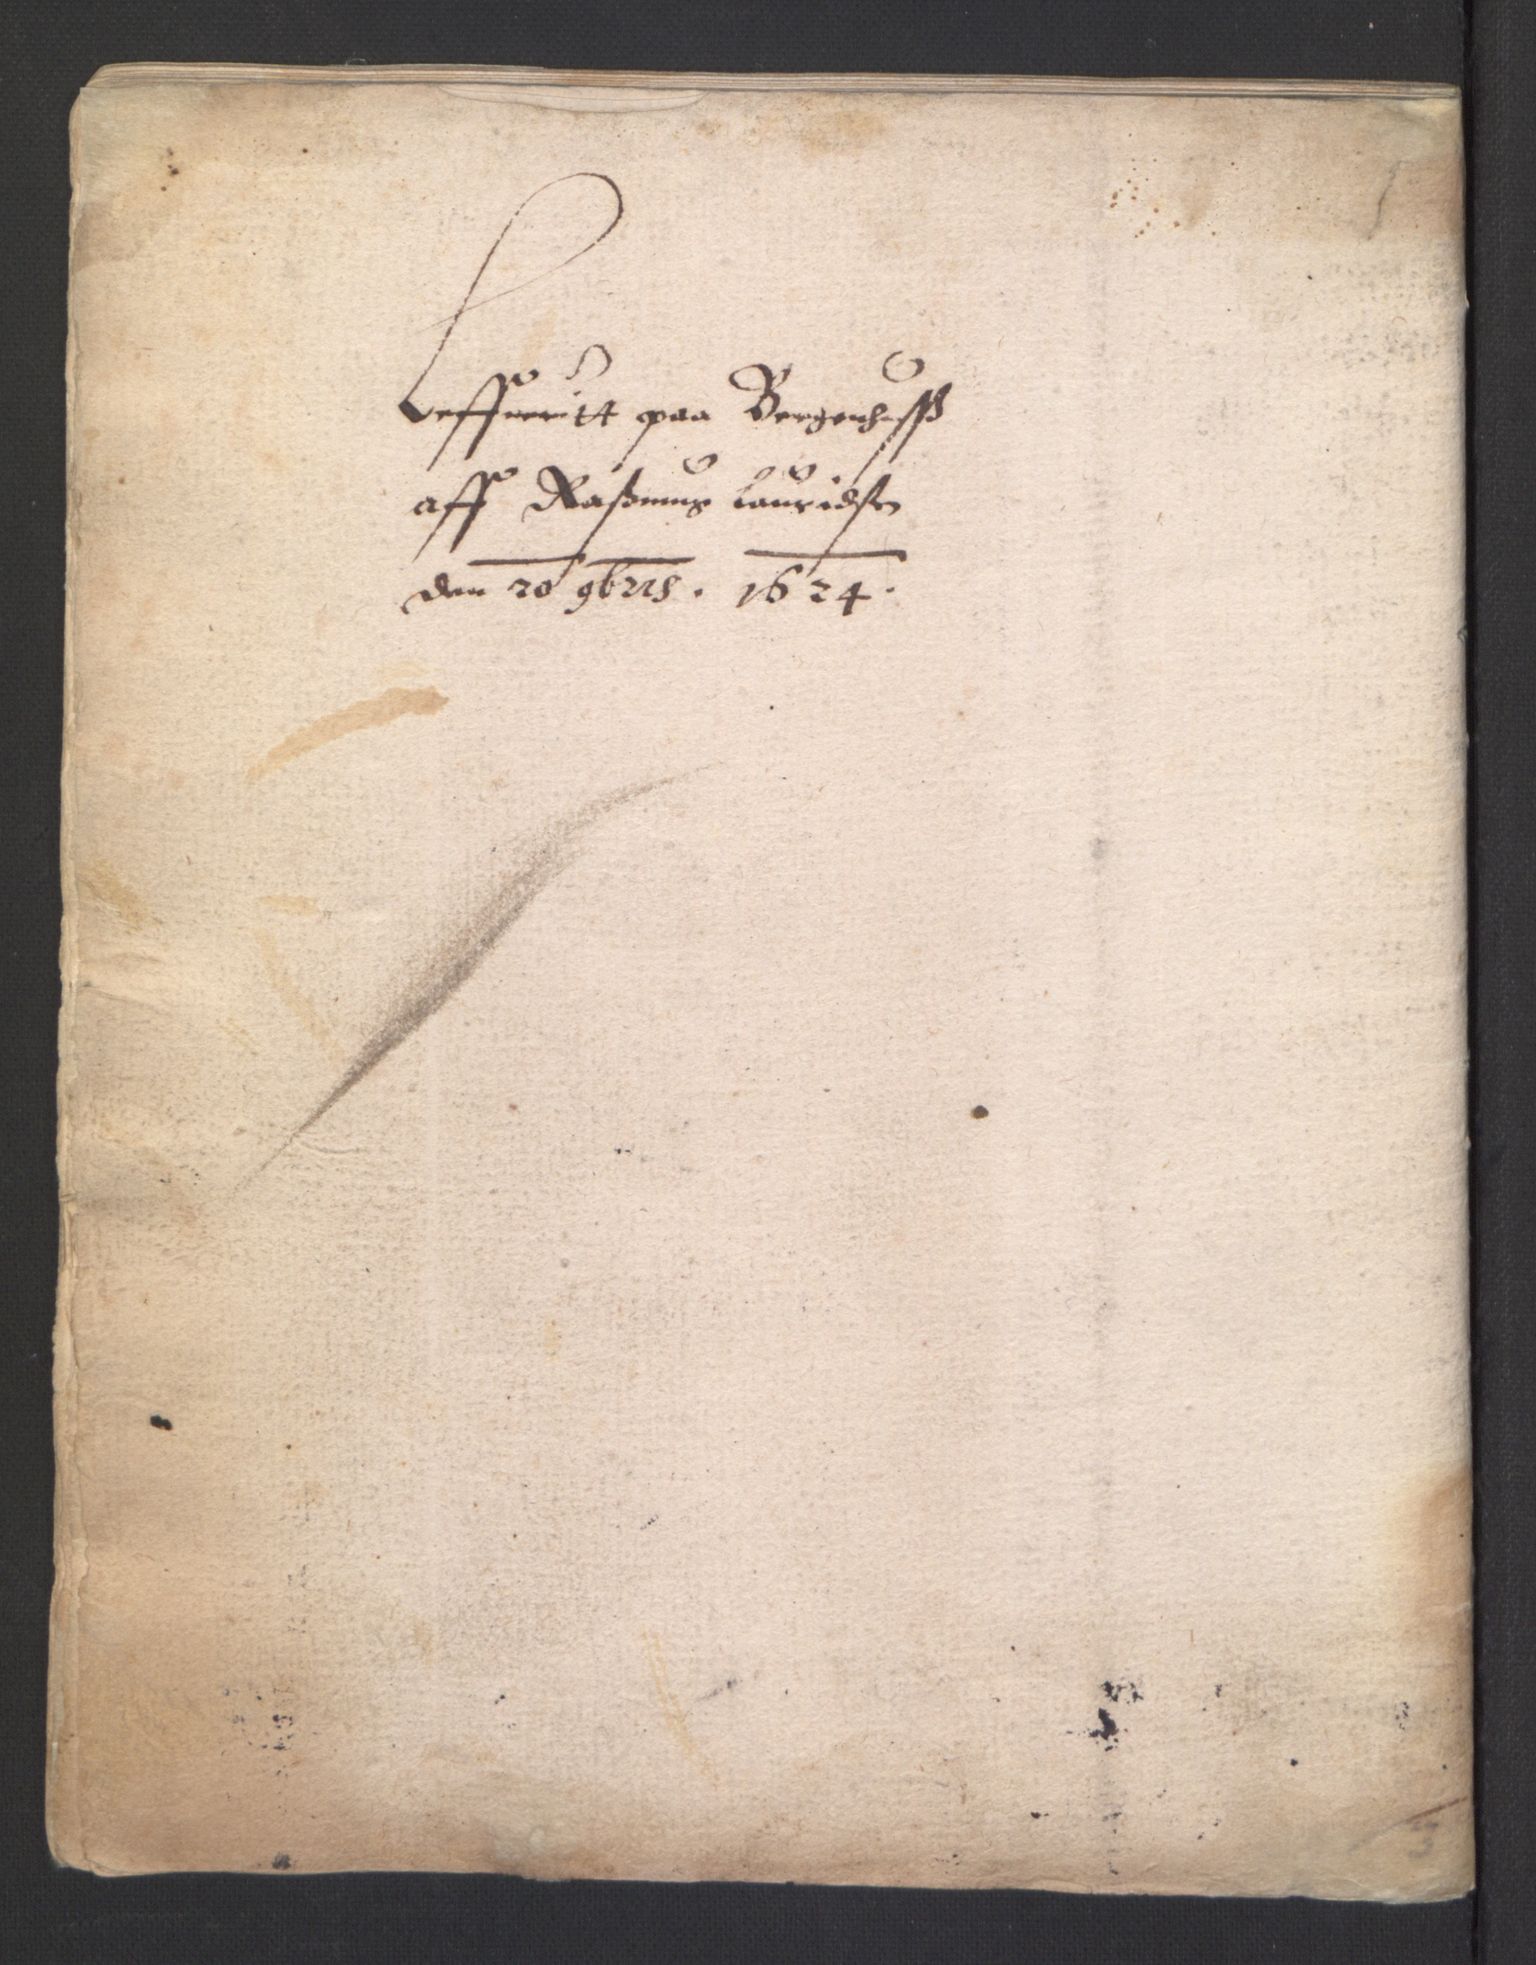 Leffueritt paa Bergenhuss
aff Rasmus Lauridsen
den 20 9bris. 1624.